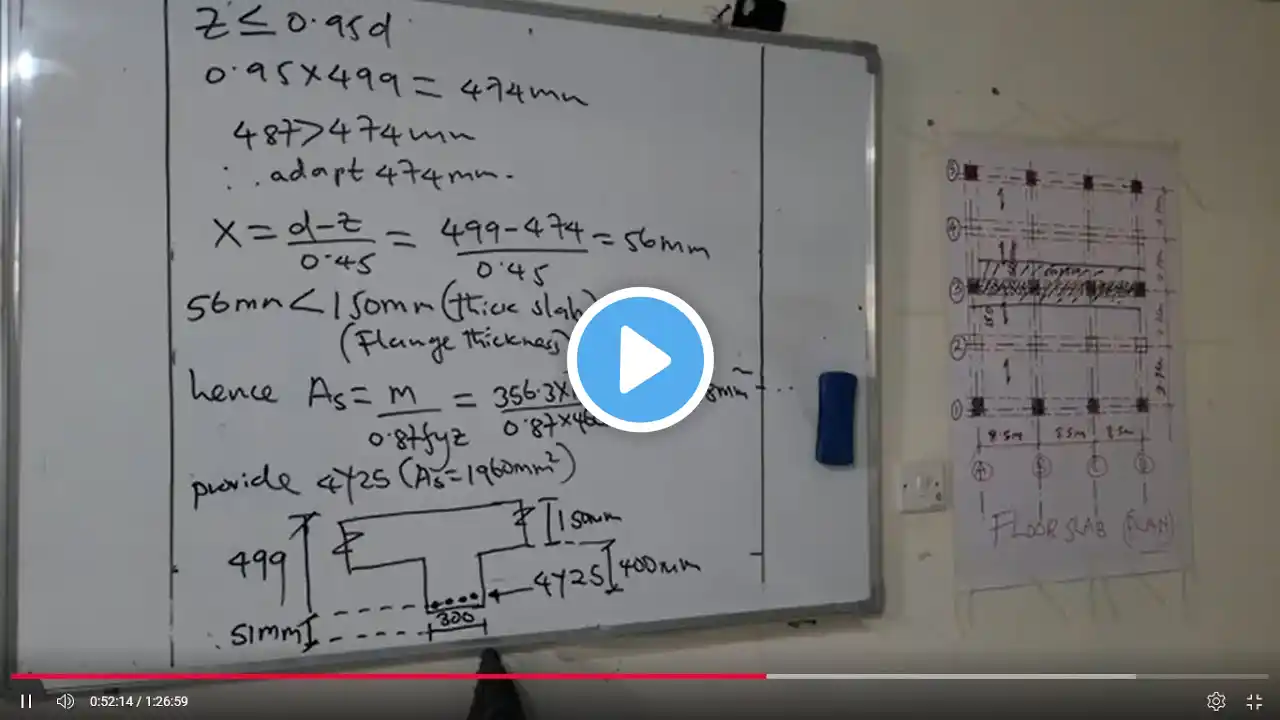 z ≤ 0.95d
0.95×499 = 474mm
487>474mm
∴ adapt 474mm.
X = d-z / 0.45 = 499-474 / 0.45 = 56mm
56mm < 150mm (thick slab)
(Flange thickness)
hence As = m / 0.87fyz = 356.3× / 0.87×
provide 4Y25 (As=1960mm²)
499
150mm
400mm
4Y25
300
51mm
5
4
3
2
1
8.5m 8.5m 8.5m
A B C D
FLOOR SLAB (PLAN)
0:52:14 / 1:26:59